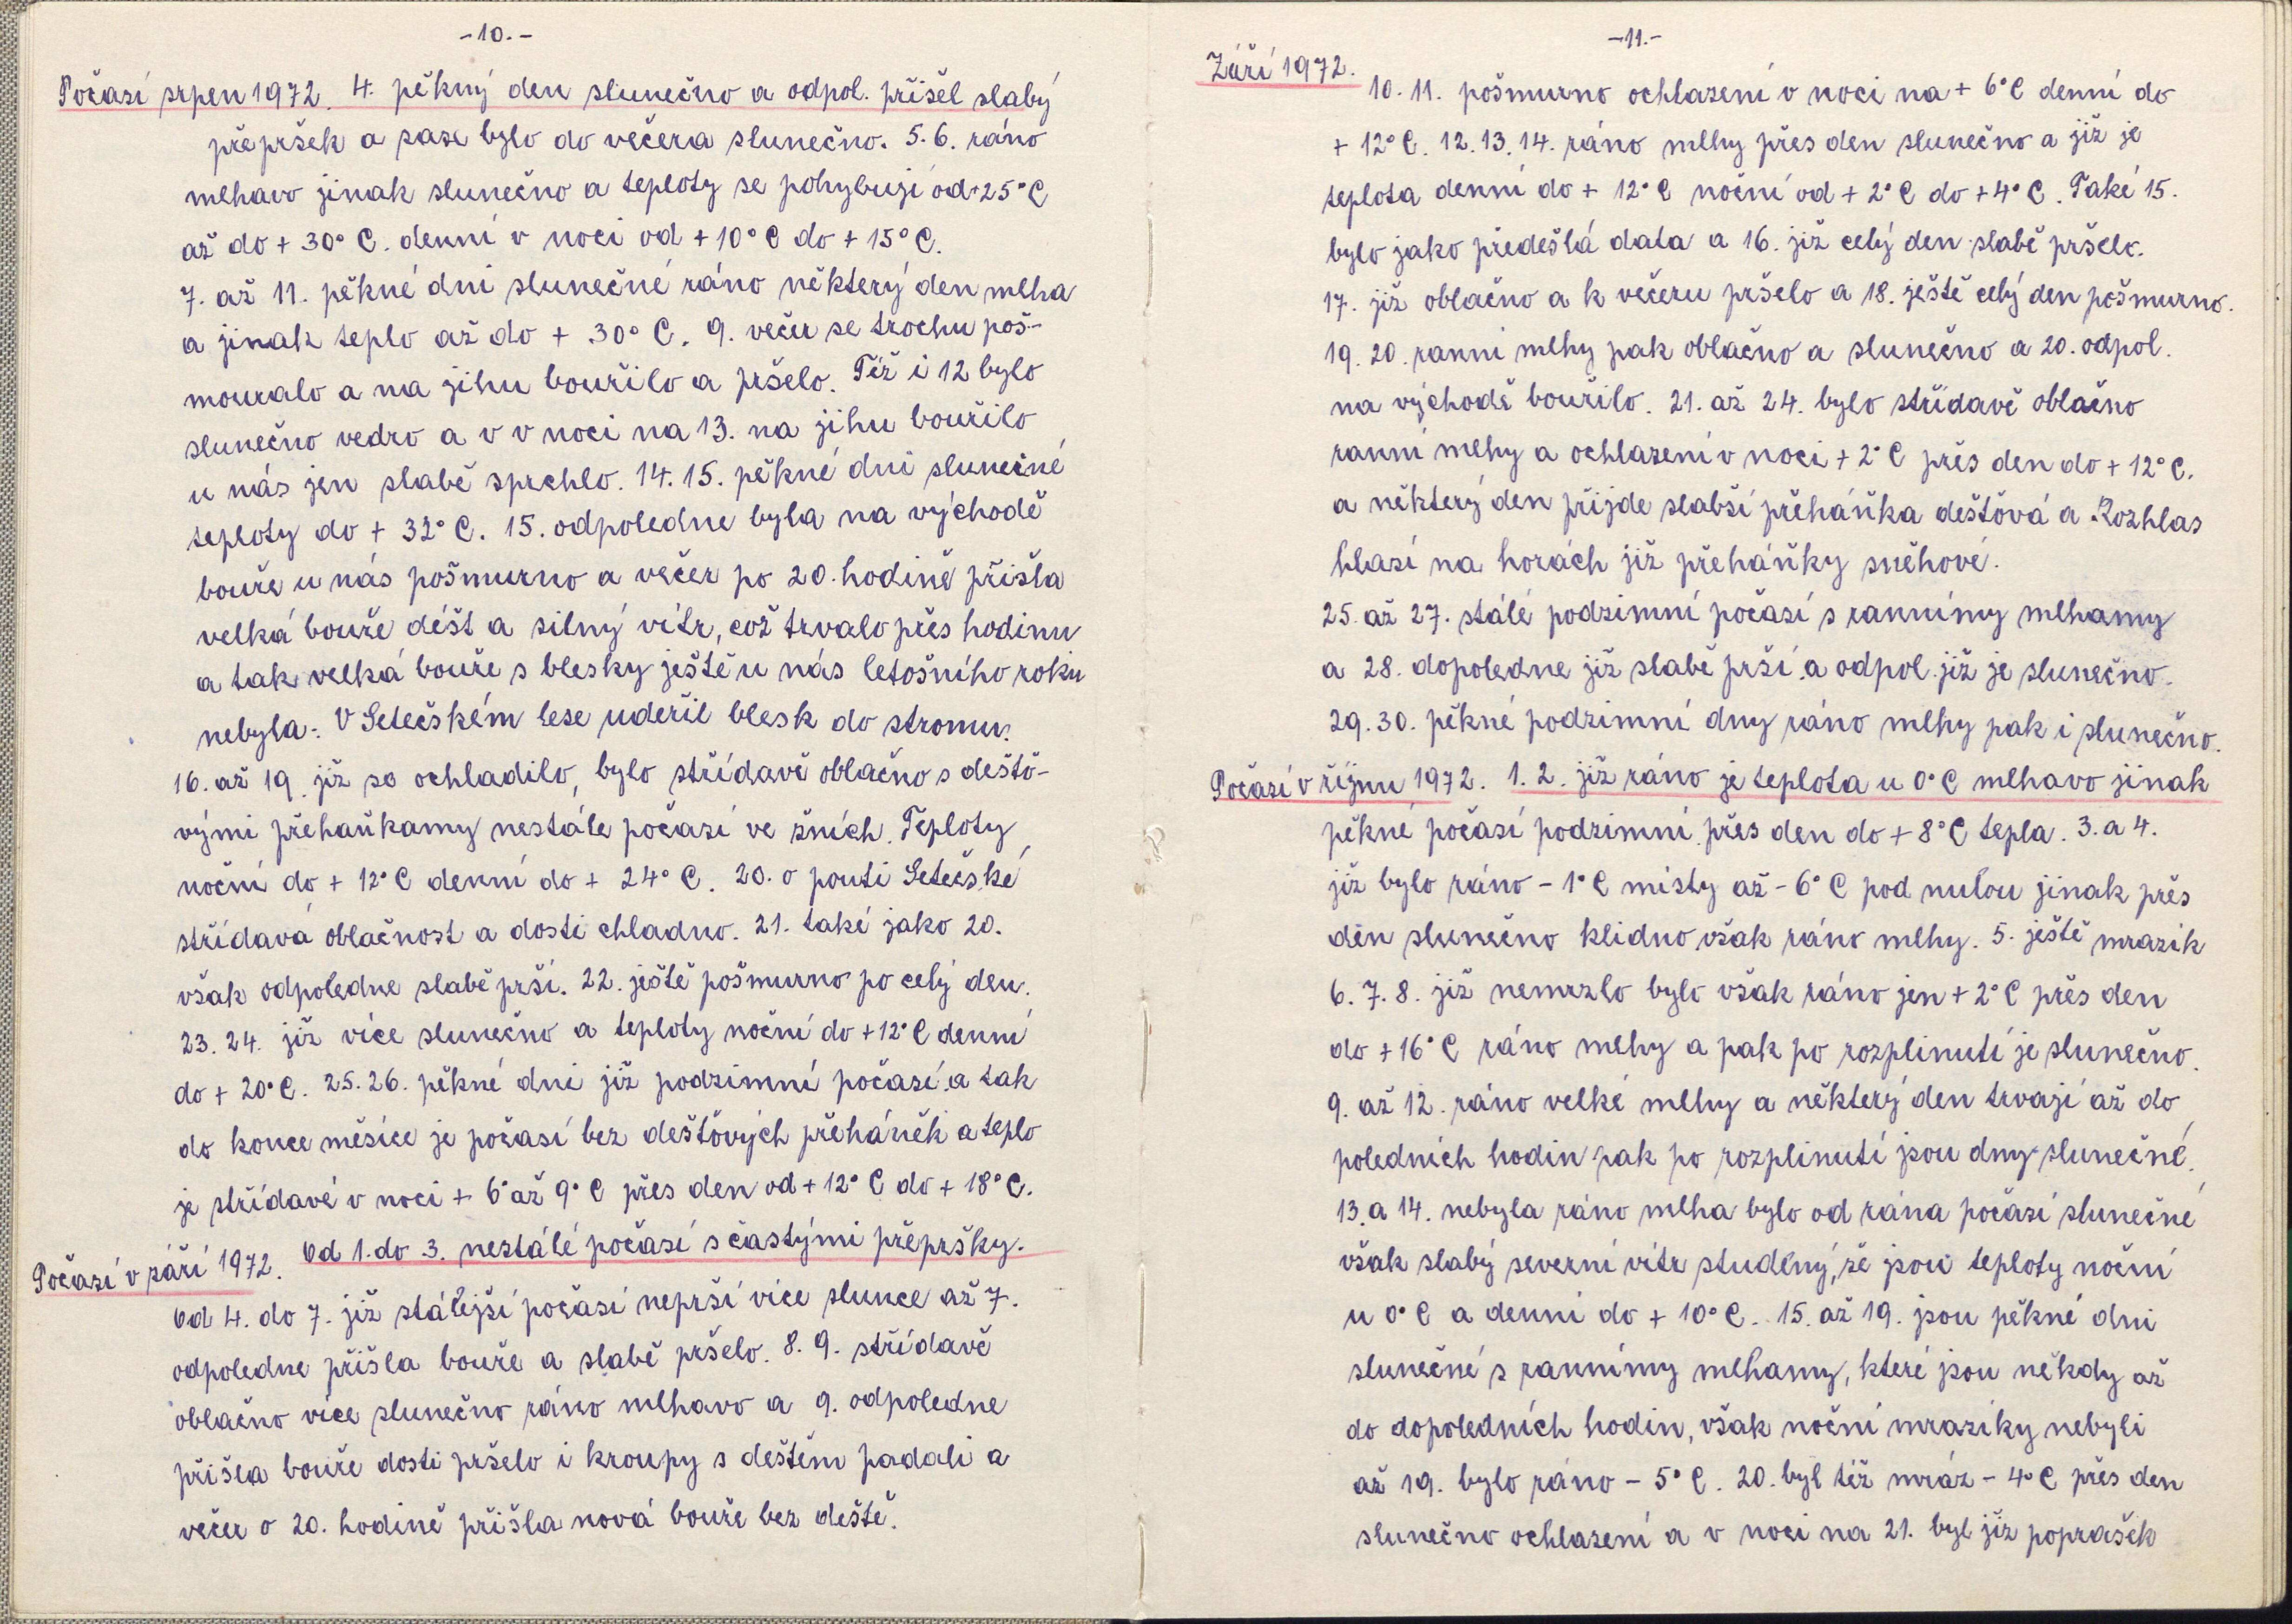 -10.-
Počasí srpen 1972. 4. pěkný den slunečno a odpol. přišel slabý
přepršek a zase bylo do večera slunečno. 5. 6. ráno
mlhavo jinak slunečno a teploty se pohybují od +25°C
až do + 30° C. denní v noci od + 10° C do + 15° C.
7. až 11. pěkné dni slunečné ráno některý den mlha
a jinak teplo až do + 30° C. 9. večer se trochu poš-
mouralo a na jihu bouřilo a pršelo. Též i 12 bylo
slunečno vedro a v v noci na 13. na jihu bouřilo
u nás jen slabě sprchlo. 14. 15. pěkné dni slunečné
teploty do + 32° C. 15. odpoledne byla na východě
bouře u nás pošmurno a večer po 20. hodině přišla
velká bouře déšt a silný vítr, což trvalo přes hodinu
a tak velká bouře s blesky ještě u nás letošního roku
nebyla. V Setečském lese udeřil blesk do stromu.
16. až 19. již se ochladilo, bylo střídavě oblačno s deště-
vými přehaňkamy nestále počasí ve žních. Teploty
noční do + 12° C denní do + 24° C. 20. o pouti Setečské
střídavá oblačnost a dosti chladno. 21. také jako 20.
však odpoledne slabě prší. 22. ještě pošmurno po celý den.
23. 24. již více slunečno a teploty noční do +12° C denní
do + 20° C. 25. 26. pěkné dni již podzimní počasí a tak
do konce měsíce je počasí bez deštových přeháněk a teplo
je střídavé v noci + 6° až 9° C přes den od + 12° C do + 18° C.
Počasí v září 1972. Od 1. do 3. nestálé počasí s častými přepršky.
Od 4. do 7. již stálejší počasí neprší více slunce až 7.
odpoledne přišla bouře a slabě pršelo. 8. 9. střídavě
oblačno více slunečno ráno mlhavo a 9. odpoledne
přišla bouře dosti pršelo i kroupy s deštěm padali a
večer o 20. hodině přišla nová bouře bez deště.
-11.-
Září 1972.
10. 11. pošmurno ochlazení v noci na + 6° C denní do
+ 12° C. 12. 13. 14. ráno mlhy přes den slunečno a již je
teplota denní do + 12° C noční od + 2° C do + 4° C. Také 15.
bylo jako předešlá data a 16. již celý den slabě pršelo.
17. již oblačno a k večeru pršelo a 18. ještě celý den pošmurno.
19. 20. ranni mlhy pak oblačno a slunečno a 20. odpol.
na východě bouřilo. 21. až 24. bylo střídavě oblačno
ranní mlhy a ochlazení v noci + 2° C přes den do + 12° C.
a některý den přijde slabší přeháňka deštová a Rozhlas
hlasí na horách již přeháňky sněhové.
25. až 27. stálé podzimní počasí s rannímy mlhamy
a 28. dopoledne již slabě prší a odpol. již je slunečno.
29. 30. pěkné podzimní dny ráno mlhy pak i slunečno.
Počasí v říjnu 1972. 1. 2. již ráno je teplota u 0° C mlhavo jinak
pěkné počasí podzimní přes den do + 8° C tepla. 3. a 4.
již bylo ráno - 1° C místy až - 6° C pod nulou jinak přes
den slunečno klidno však ráno mlhy. 5. ještě mrazik
6. 7. 8. již nemrzlo bylo však ráno jen + 2° C přes den
do + 16° C ráno mlhy a pak po rozplinutí je slunečno.
9. až 12. ráno velké mlhy a některý den trvají až do
poledních hodin pak po rozplinutí jsou dny slunečné.
13. a 14. nebyla ráno mlha bylo od rána počasí slunečné
však slabý severní vítr studený, že jsou teploty noční
u 0° C a denní do + 10° C. 15. až 19. jsou pěkné dni
slunečné s rannímy mlhamy, které jsou někdy až
do dopoledních hodin, však noční mraziky nebyli
až 19. bylo ráno - 5° C. 20. byl též mráz - 4° C přes den
slunečno ochlazení a v noci na 21. byl již poprašek